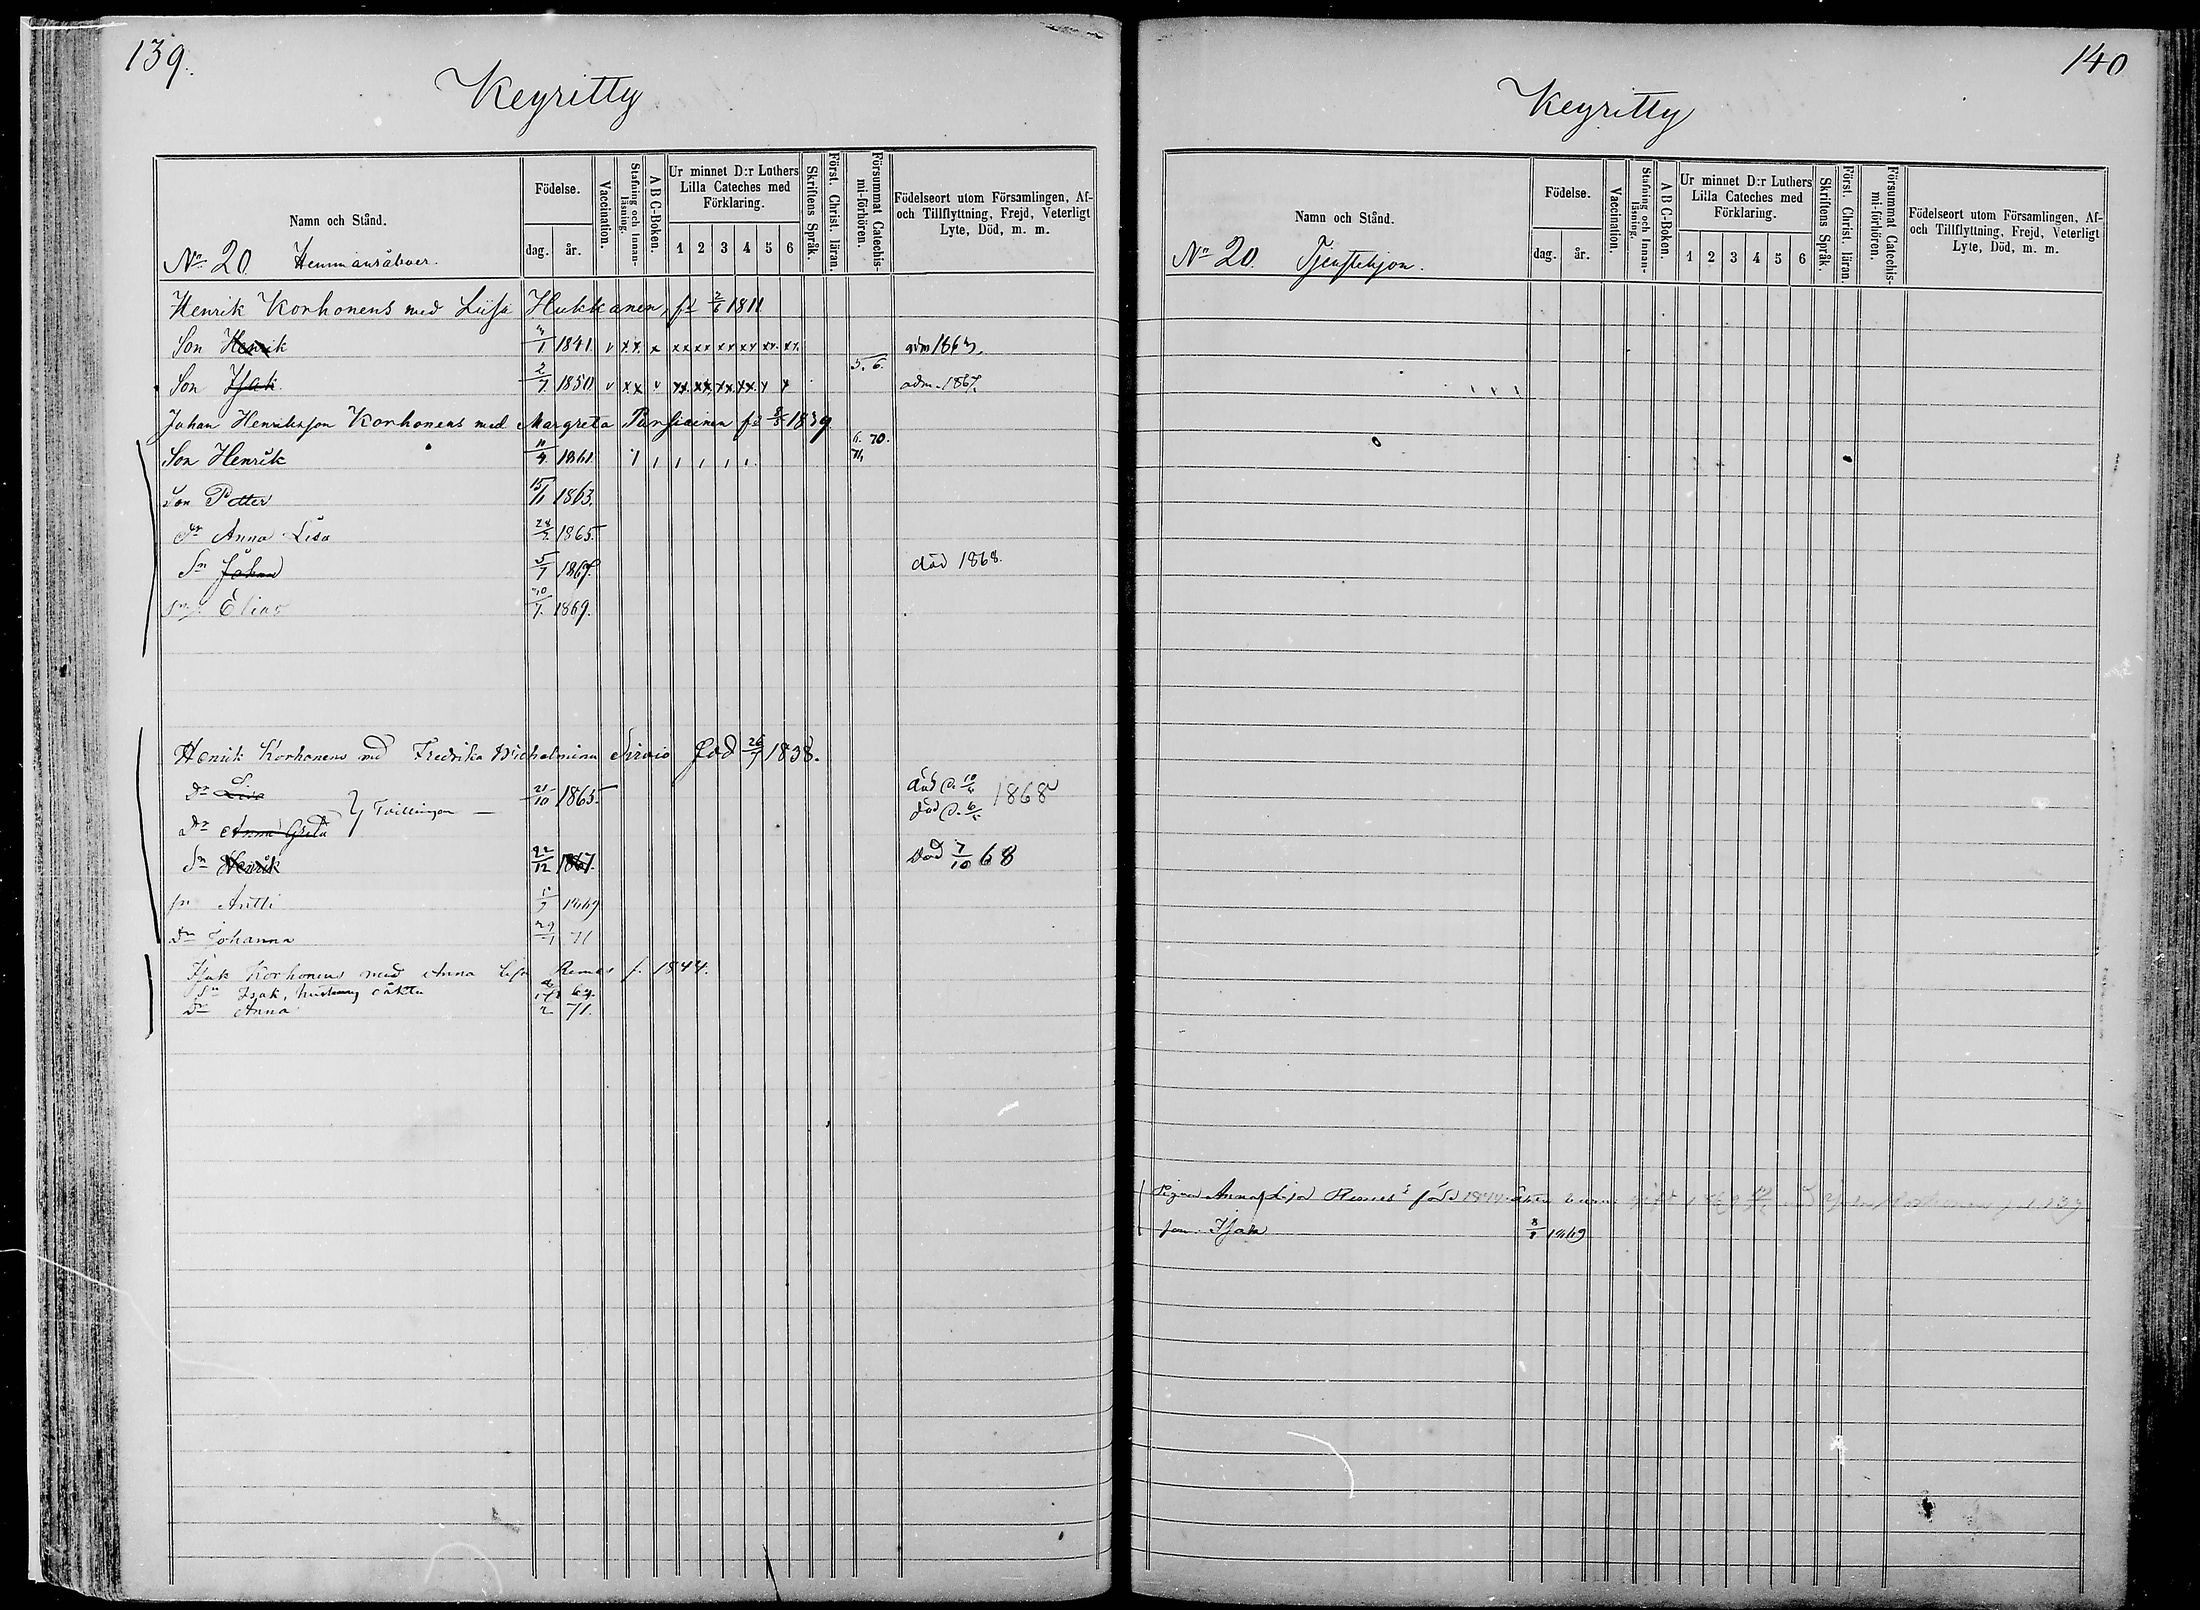 139.
Keyritty
Namn och Stånd.
Födelse.
dag.
år.
Vaccination.
Stafning och Innan-läsning.
A B C-Boken.
Ur minnet D:r Luthers Lilla Cateches med Förklaring.
1 2 3 4 5 6
Skriftens Språk.
Först. Christ. läran.
Försummat Catechis-mi-förhören.
Födelseort utom Församlingen, Af- och Tillflyttning, Frejd, Veterligt Lyte, Död, m. m.
No 20 Hemmansåboer.
Henrik Korhonens med Liisa Hukkanen, fd 2/6 1811
Son Henrik 1841 v xx x xx xx xx xx xx xx
Son Isak 2/7 1850 v xx v xx xx xx xx x x adm. 1867.
5. 6.
Johan Henriksson Korhonens med Margreta fd 1839
6. 70.
Son Henrik 1861
71,
Son Petter 15/1 1863.
Dr Anna Lisa 1865
Sn Johan 5/7 1867. död 1868.
Elias 1869.
Henrik Korhonens md Fredrika Wilhelmina född 26/7 1838.
Dr Lisa 21/10 1865 död d. 10/6 1868
Tvillingar
Dr Anna Greta död d.
Sn Henrik 22/12 1867. död 7/10 68
sn Antti 1869
Dr Johanna 71
Isak Korhonens med Anna Lisa Remes f. 1844.
Sn Isak, hustruns oäkta 69.
Dr Anna 2 71.
140
Keyritty
Namn och Stånd.
Födelse.
dag.
år.
Vaccination.
Stafning och Innan-läsning.
A B C-Boken.
Ur minnet D:r Luthers Lilla Cateches med Förklaring.
1 2 3 4 5 6
Skriftens Språk.
Först. Christ. läran.
Försummat Catechis-mi-förhören.
Födelseort utom Församlingen, Af- och Tillflyttning, Frejd, Veterligt Lyte, Död, m. m.
No 20. Tjenstehjon.
Pigan Anna Lisa Remes född 1844. 1869 139
son Isak 1869